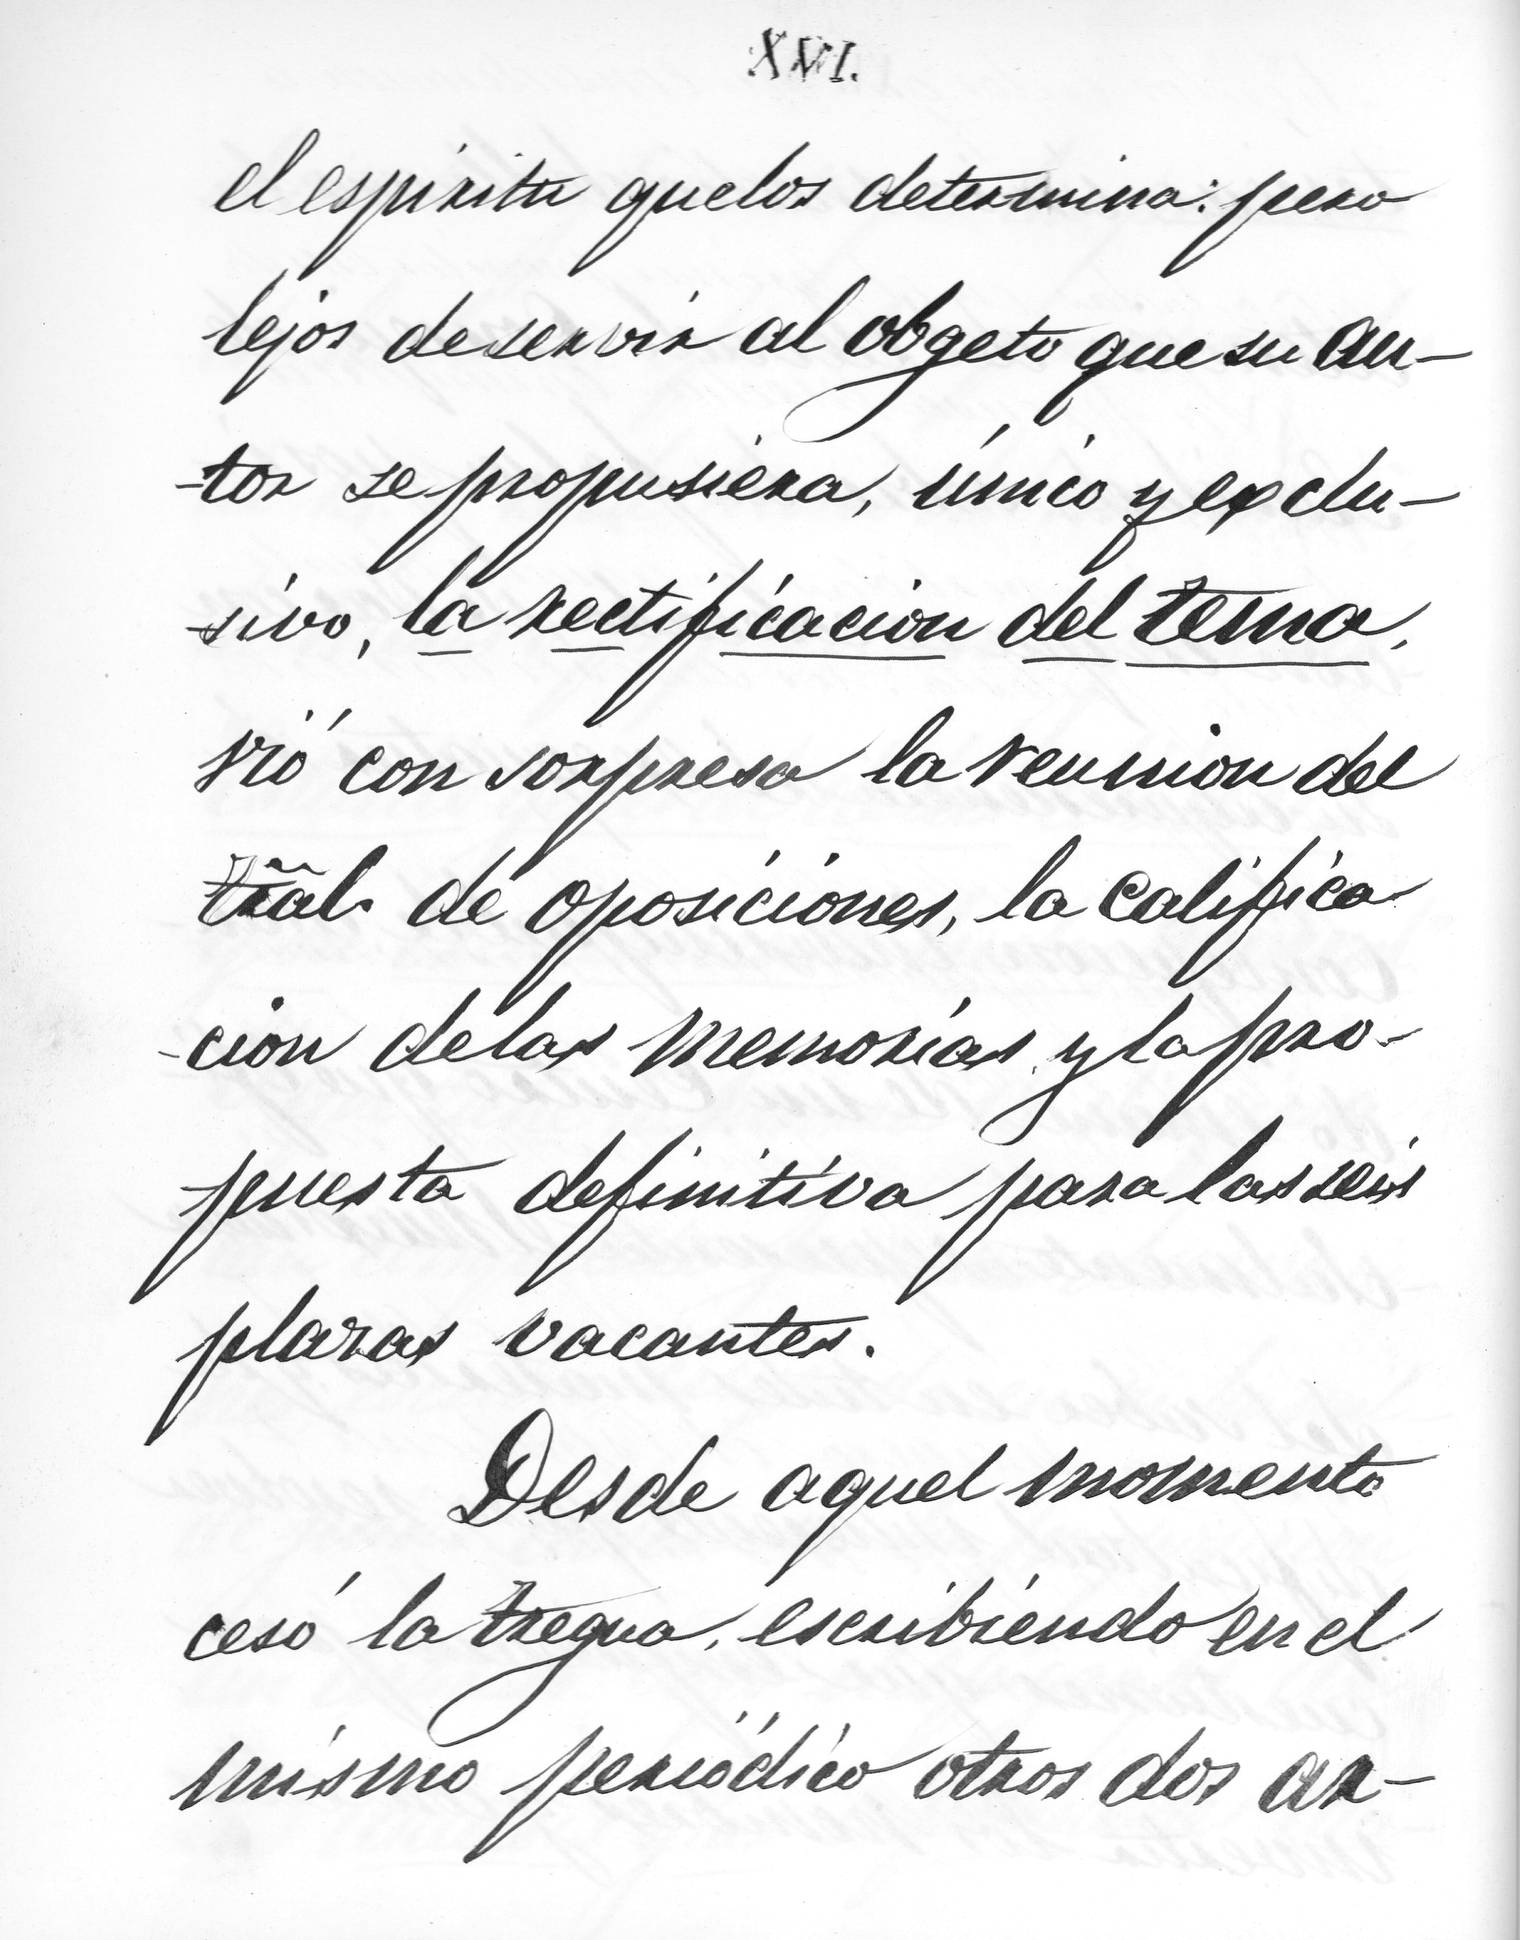 XVI.
el espíritu que los determina: pero
lejos de servir al obgeto que su au-
-tor se propusiera, único y exclu-
-sivo, la rectificacion del tema,
vió con sorpresa la reunion del
trãal. de oposiciones, la califica-
-cion de las memorias y la pro-
puesta definitiva para las seis
plazas vacantes.
Desde aquel momento
cesó la tregua, escribiendo en el
mismo periódico otros dos ar-